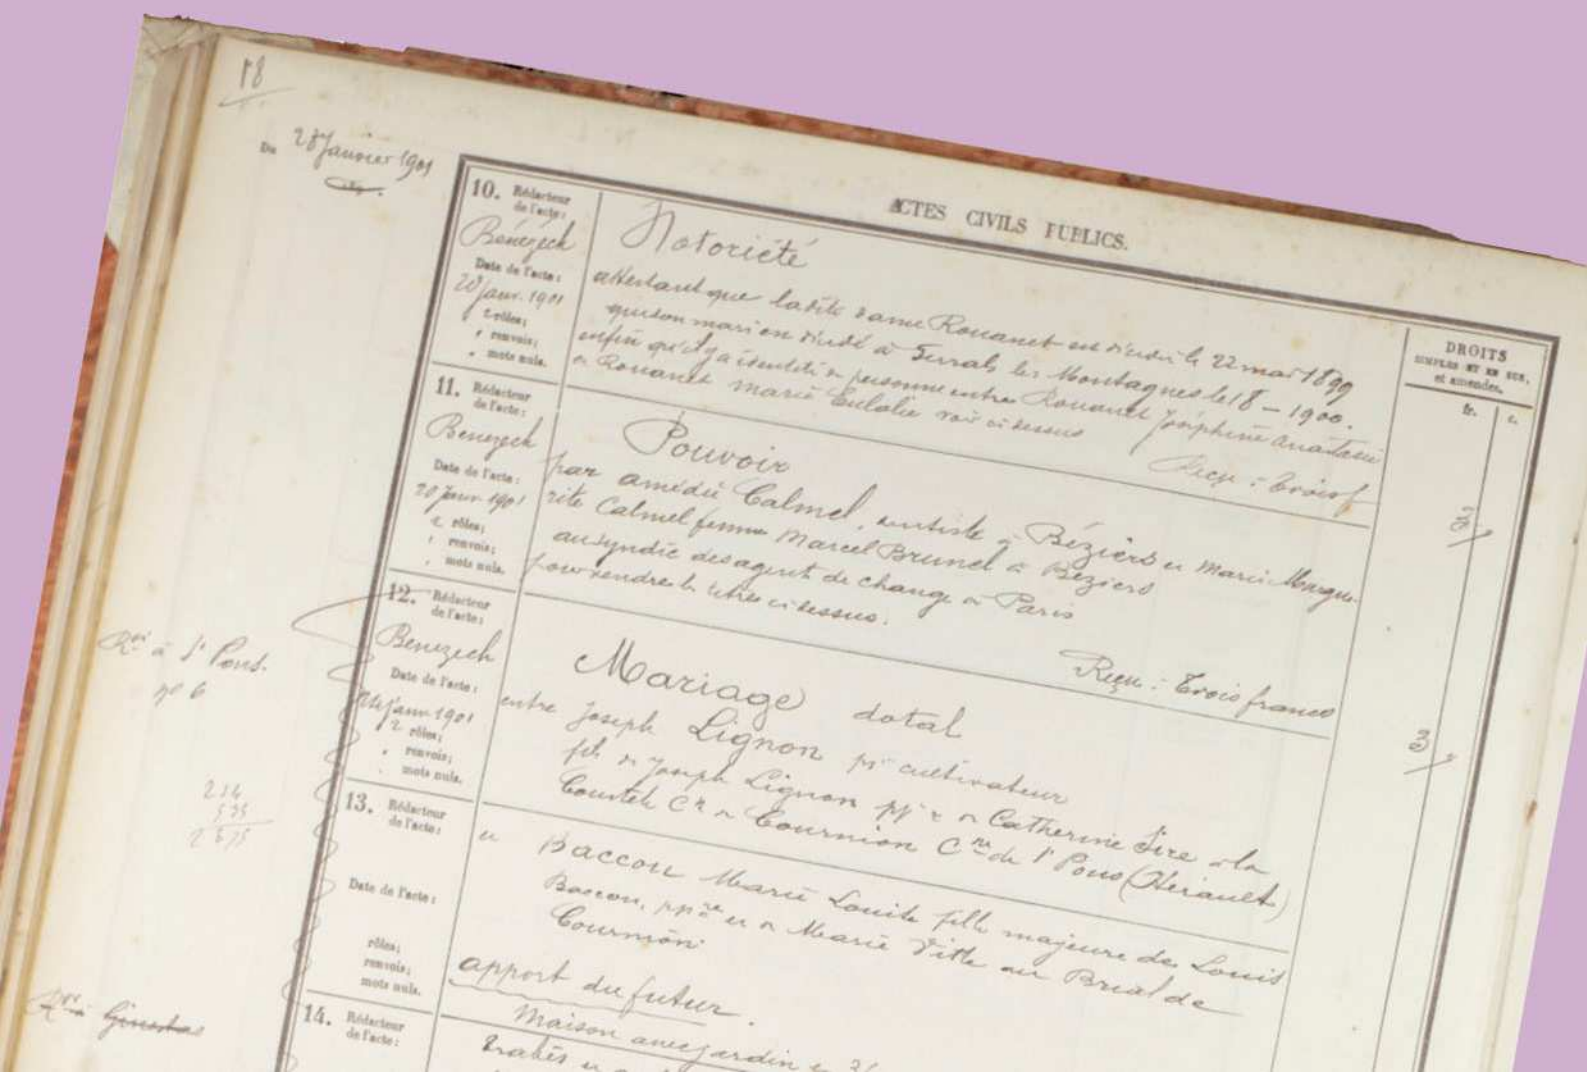 18
Du 28 Janvier 1901
ACTES CIVILS PUBLICS.
DROITS
SIMPLES ET EN SUS,
et amendes.
fr. c.
10. Rédacteur
de l'acte:
Benezech
Date de l'acte:
20 janv. 1901
2 rôles;
renvois;
mots nuls.
Notoriété
attestant que ladite dame Rouanet est décédée le 22 mai 1899
que son mari est décédé à Ferrals les Montagnes le 18 - 1900.
enfin qu'il y a identité de personne entre Rouanet Joséphine Anastasie
et Rouanet Marie Eulalie voir ci dessus
Reçu : trois f
3
11. Rédacteur
de l'acte:
Benezech
Date de l'acte:
20 Janv 1901
2 rôles;
renvois;
mots nuls.
Pouvoir
par Amédée Calmel, dentiste à Béziers et Marie Margue-
rite Calmel femme Marcel Brunel à Béziers
au syndic des agents de change à Paris
pour vendre les titres ci dessus.
Reçu : Trois francs
3
12. Rédacteur
de l'acte:
Benezech
Date de l'acte:
24 janv 1901
2 rôles;
renvois;
mots nuls.
Rvi à St Pons.
no 6
Mariage dotal
entre Joseph Lignon pr cultivateur
fils de Joseph Lignon ppre et Catherine Sire à la
Cne de Courniou Con de St Pons (Hérault)
13. Rédacteur
de l'acte:
Date de l'acte:
rôles;
renvois;
mots nuls.
et Baccou Marie Louise fille majeure de Louis
Baccou, ppre et de Marie au Brial de
Courniou
apport du futur.
Maison avec jardin
14. Rédacteur
de l'acte:
Rvi à